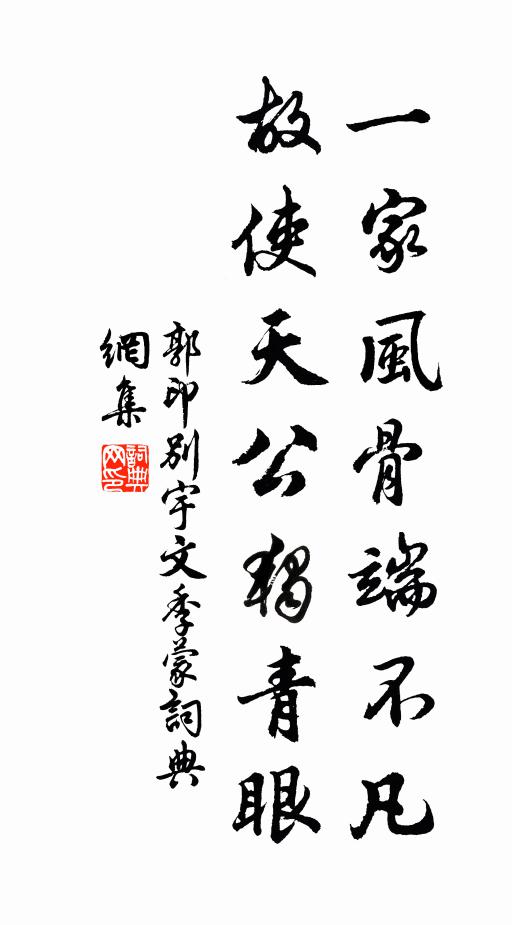 一家風骨端不凡
故使天公獨青眼
郭印別宇文季蒙詞典
網集
詞典
网印